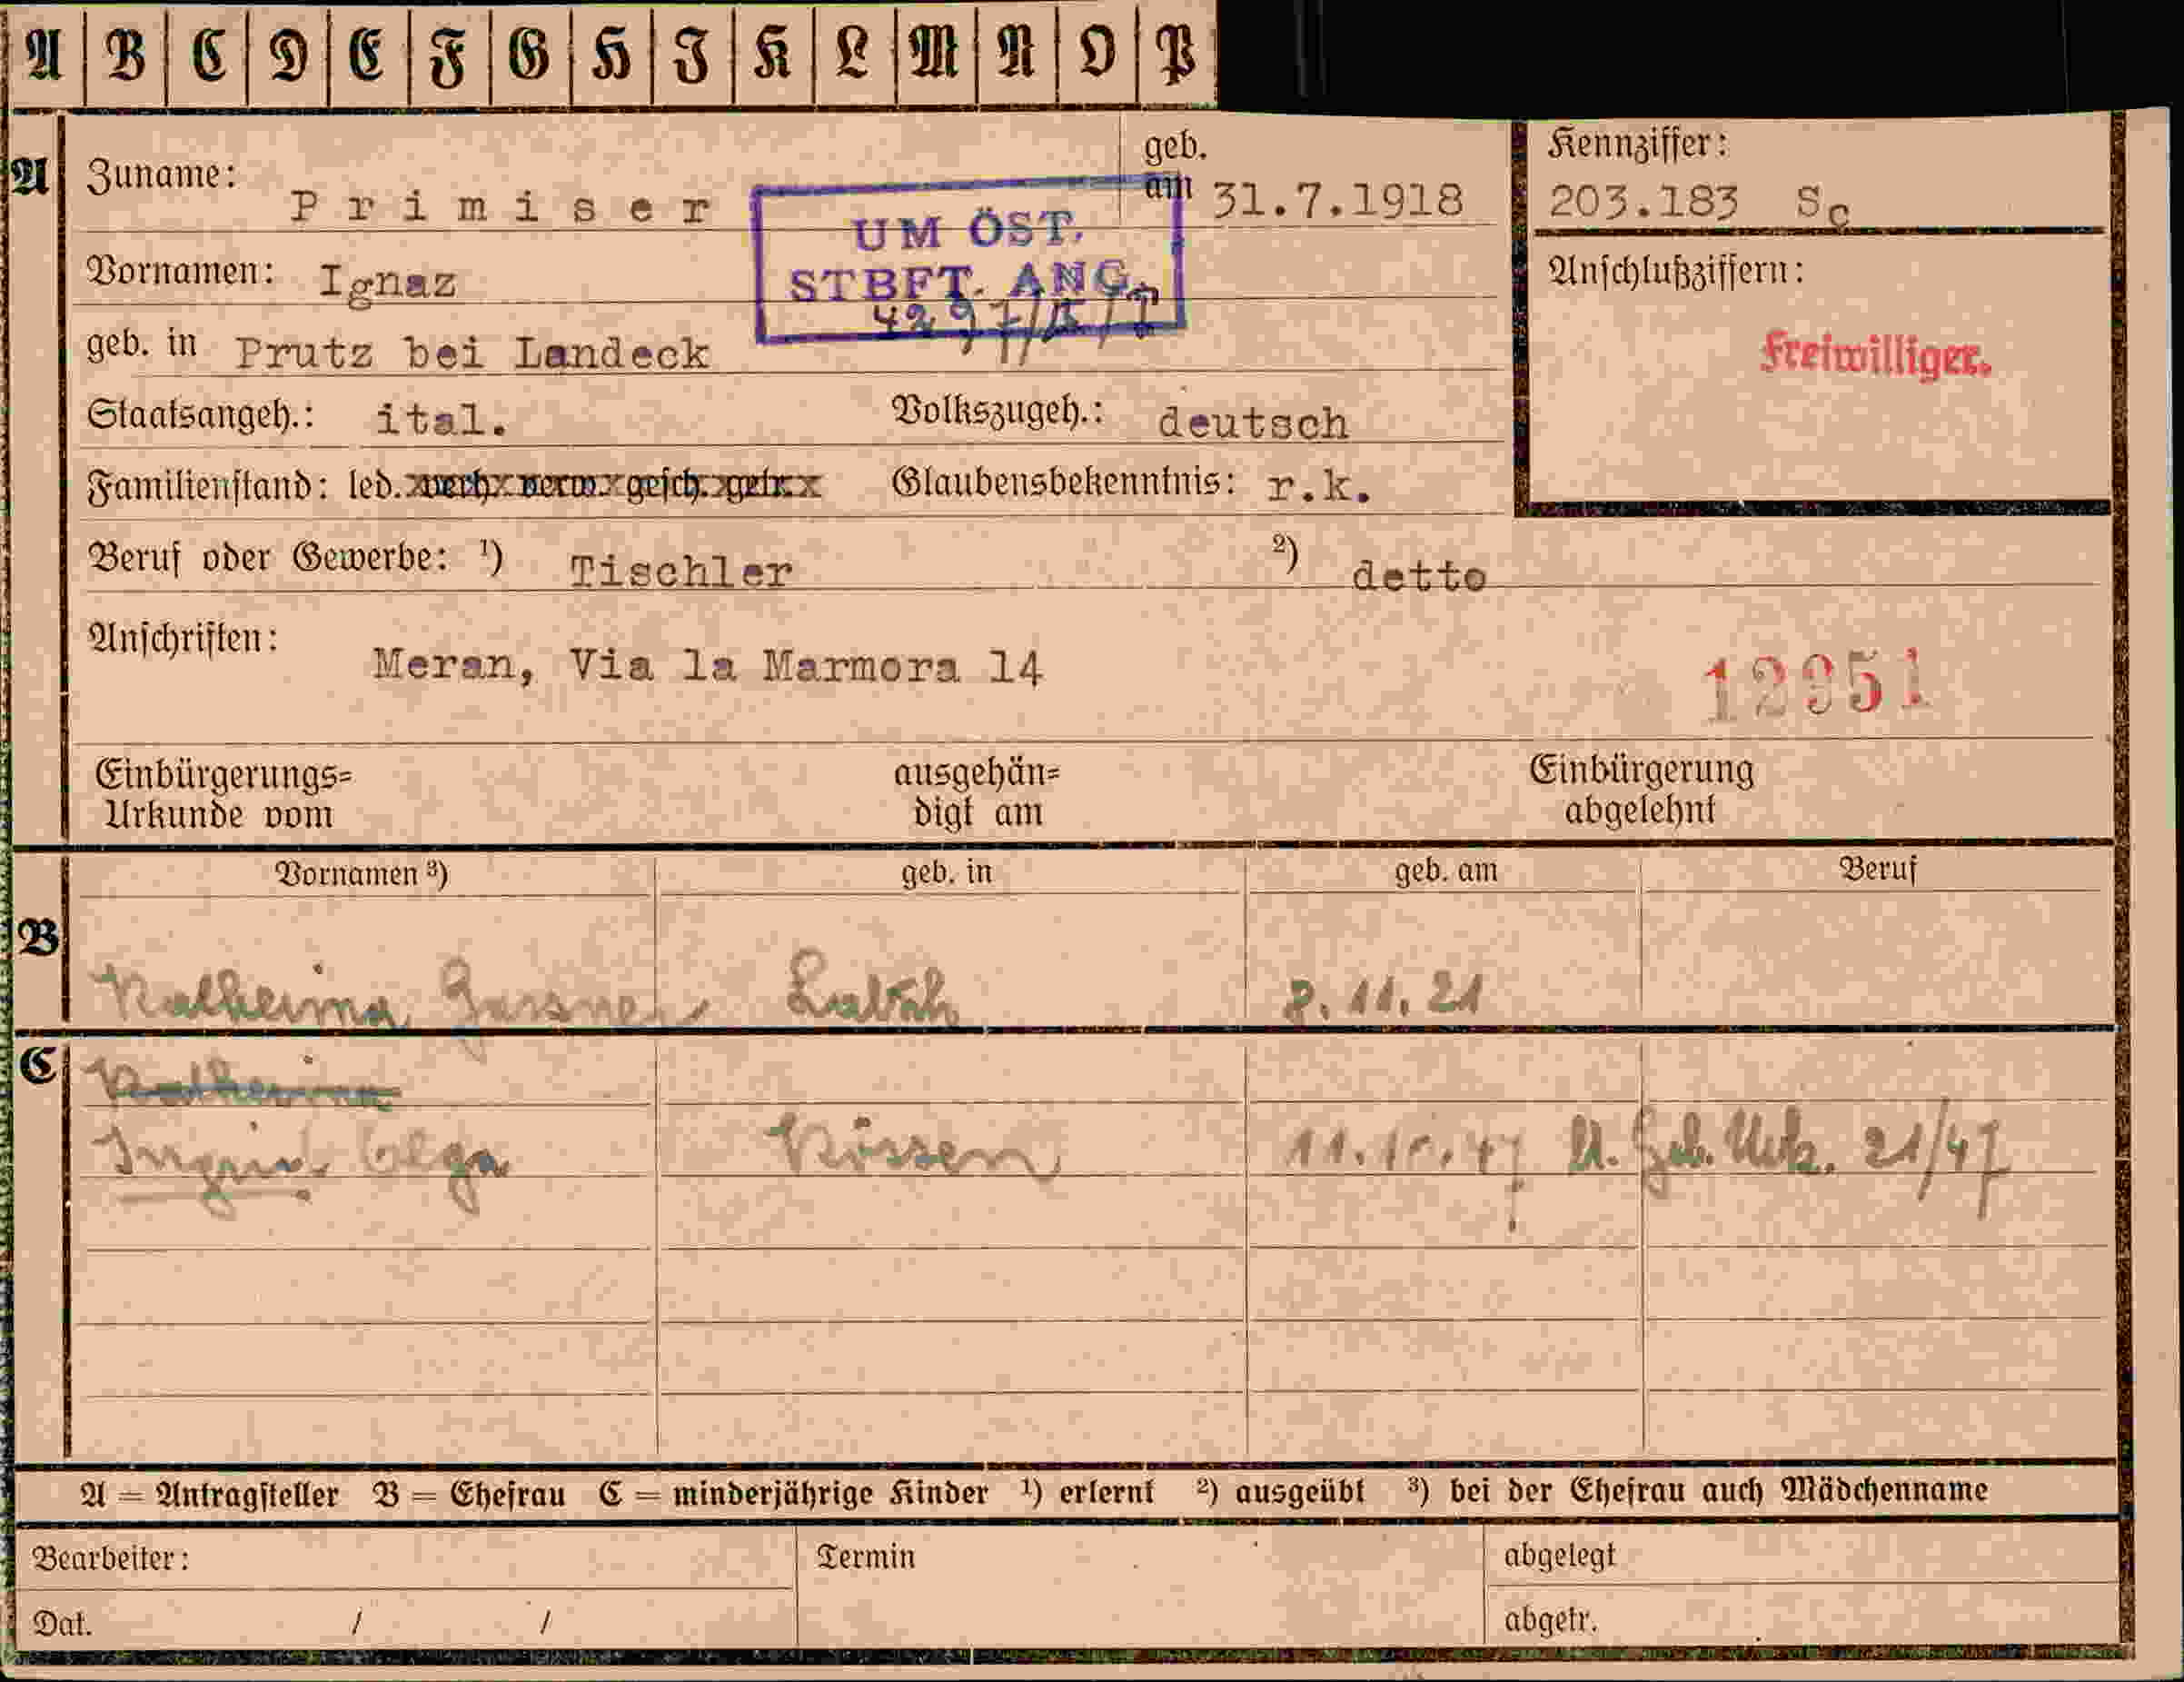 A B C D E F G H I K L M N O P
A
Zuname: Primiser
geb. am 31.7.1918
Kennziffer:
203.183 Sc
UM ÖST.
STBFT. ANG.
Vornamen: Ignaz
Anschlußziffern:
Freiwilliger.
geb. in Prutz bei Landeck
Staatsangeh.: ital. Volkszugeh.: deutsch
Familienstand: led. verh. verw. gesch. getr. Glaubensbekenntnis: r.k.
Beruf oder Gewerbe: ¹) Tischler ²) detto
Anschriften: Meran, Via la Marmora 14
12951
Einbürgerungs=
Urkunde vom
ausgehän=
digt am
Einbürgerung
abgelehnt
Vornamen ³) geb. in geb. am Beruf
B
Katharina Gassner 8.11.21
C
Katharina
Ingrid Olga Kössen 11.10.47 Geb. Urk. 21/47
A = Antragsteller B = Ehefrau C = minderjährige Kinder ¹) erlernt ²) ausgeübt ³) bei der Ehefrau auch Mädchenname
Bearbeiter: Termin abgelegt
Dat. / / abgetr.